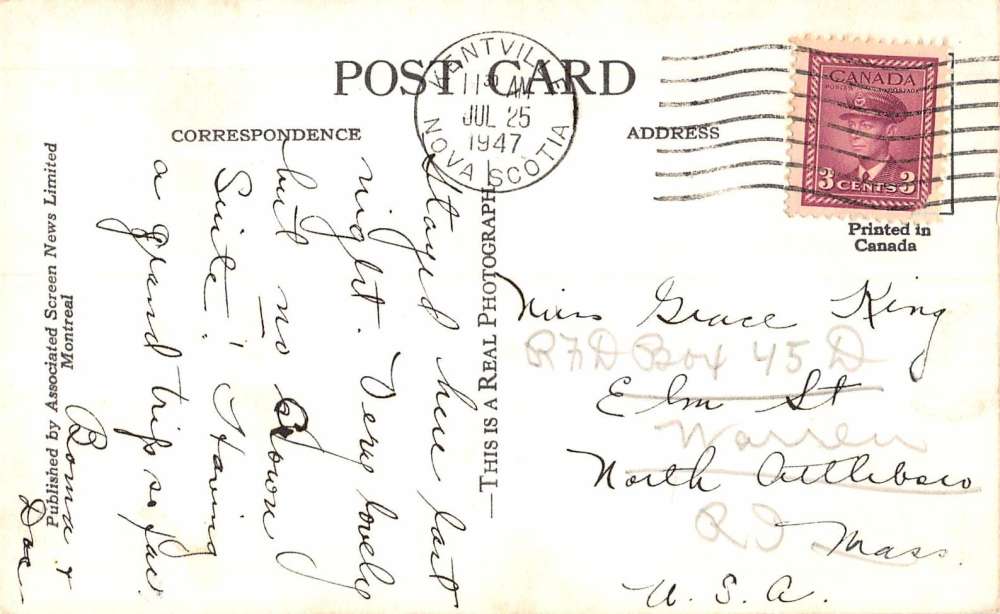 POST CARD
CORRESPONDENCE
ADDRESS
KENTVILLE
11 30 AM
JUL 25
1947
NOVA SCOTIA
CANADA
POSTES POSTAGE
3 CENTS 3
Printed in
Canada
Published by Associated Screen News Limited
Montreal
THIS IS A REAL PHOTOGRAPH
Stayed here last
night. Very lovely
but no
Suite! Having
a grand trip so far
&
Doc
Miss Grace King
RFD Box 45 D
Elm St
Warren
North Attleboro
RD
Mass.
U. S. A.